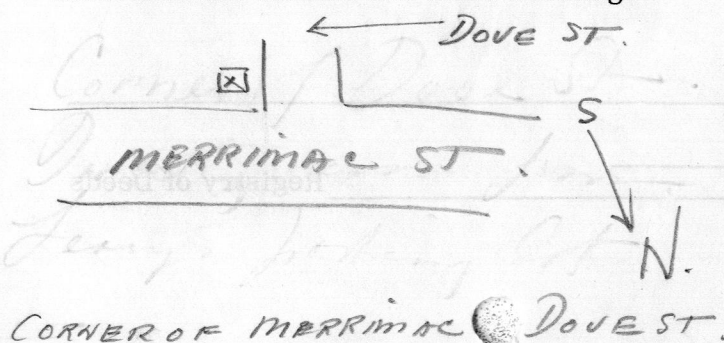 DOVE ST.
X
S
MERRIMAC ST.
Registry of Deeds
N.
CORNER OF MERRIMAC DOVE ST.